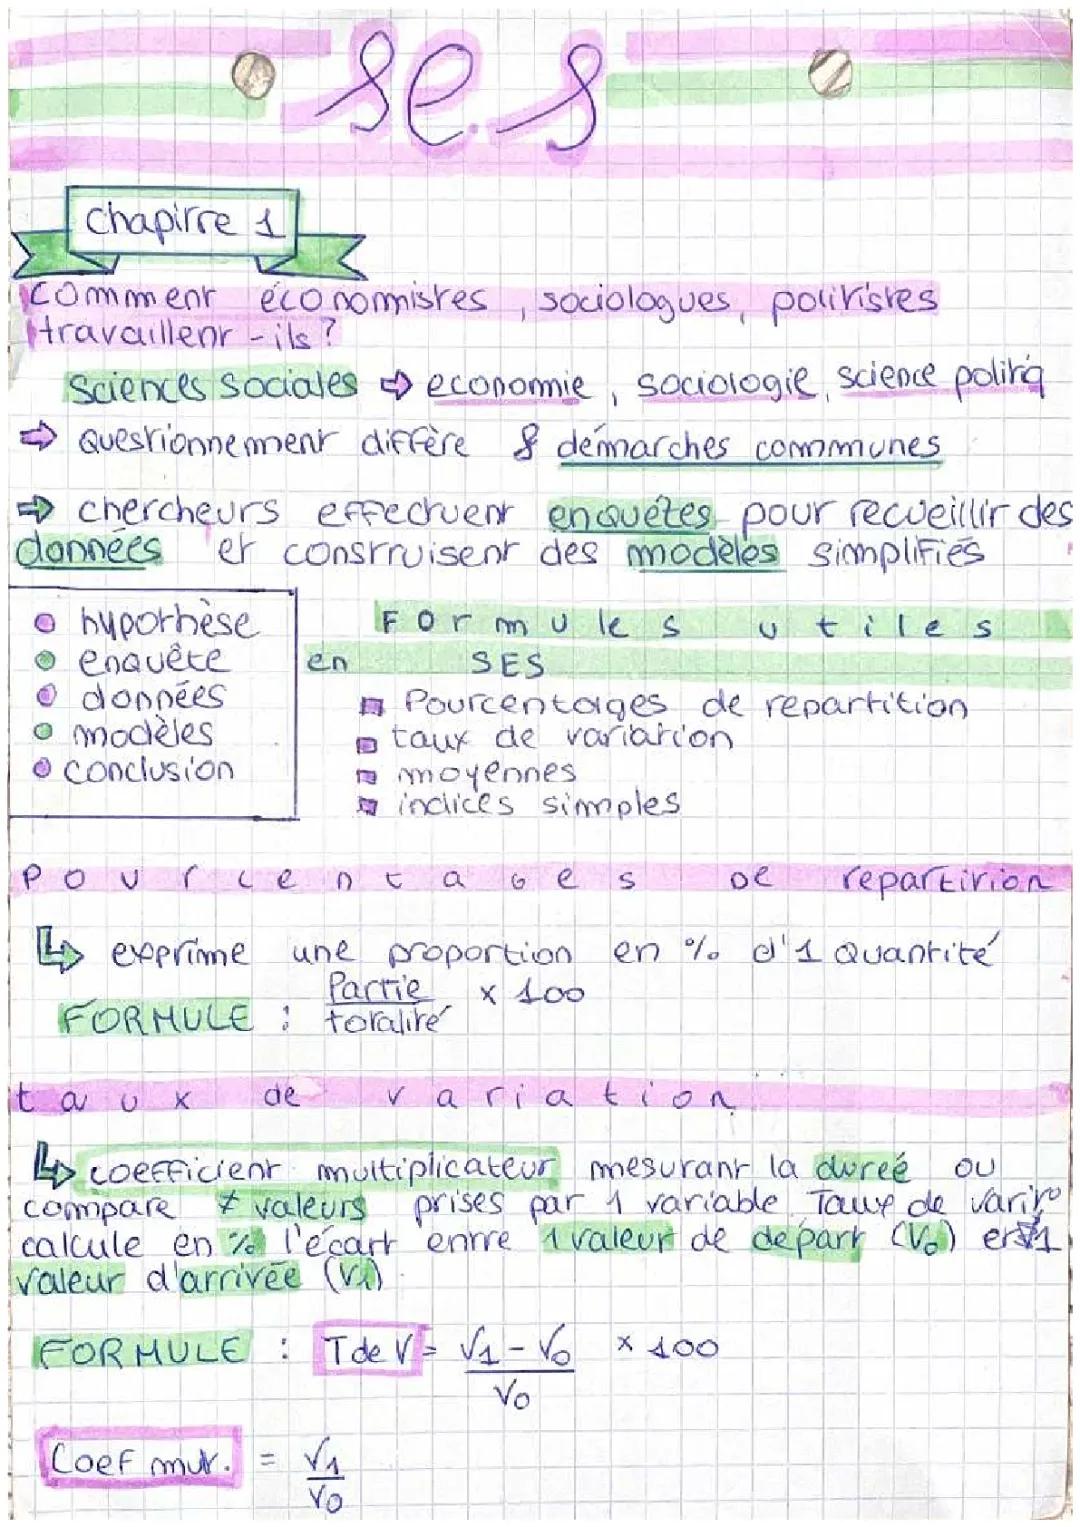 se.s
chapitre 1
Comment économistes, sociologues, politistes
travaillent-ils?
Sciences Sociales ⇨ economie, sociologie, science politiq
⇨ Questionnement diffère & démarches communes
⇨ chercheurs effectuent enquêtes pour recueillir des
données et construisent des modèles simplifiés
hypothèse
enquête
données
modèles
conclusion
Formules utiles
en SES
Pourcentages de repartition
taux de variation
moyennes
indices simples
Pourcentages de repartition
↳ exprime une proportion en % d'1 Quantité
FORMULE : Partie / totalité × 100
taux de variation
↳ coefficient multiplicateur mesurant la dureé ou
compare ≠ valeurs prises par 1 variable Taux de varito
calcule en % l'écart entre 1 valeur de départ (V₀) et 1
valeur d'arrivée (V1)
FORMULE : T de V = V1 - V0 / V0 × 100
Coef mut. = V1 / V0